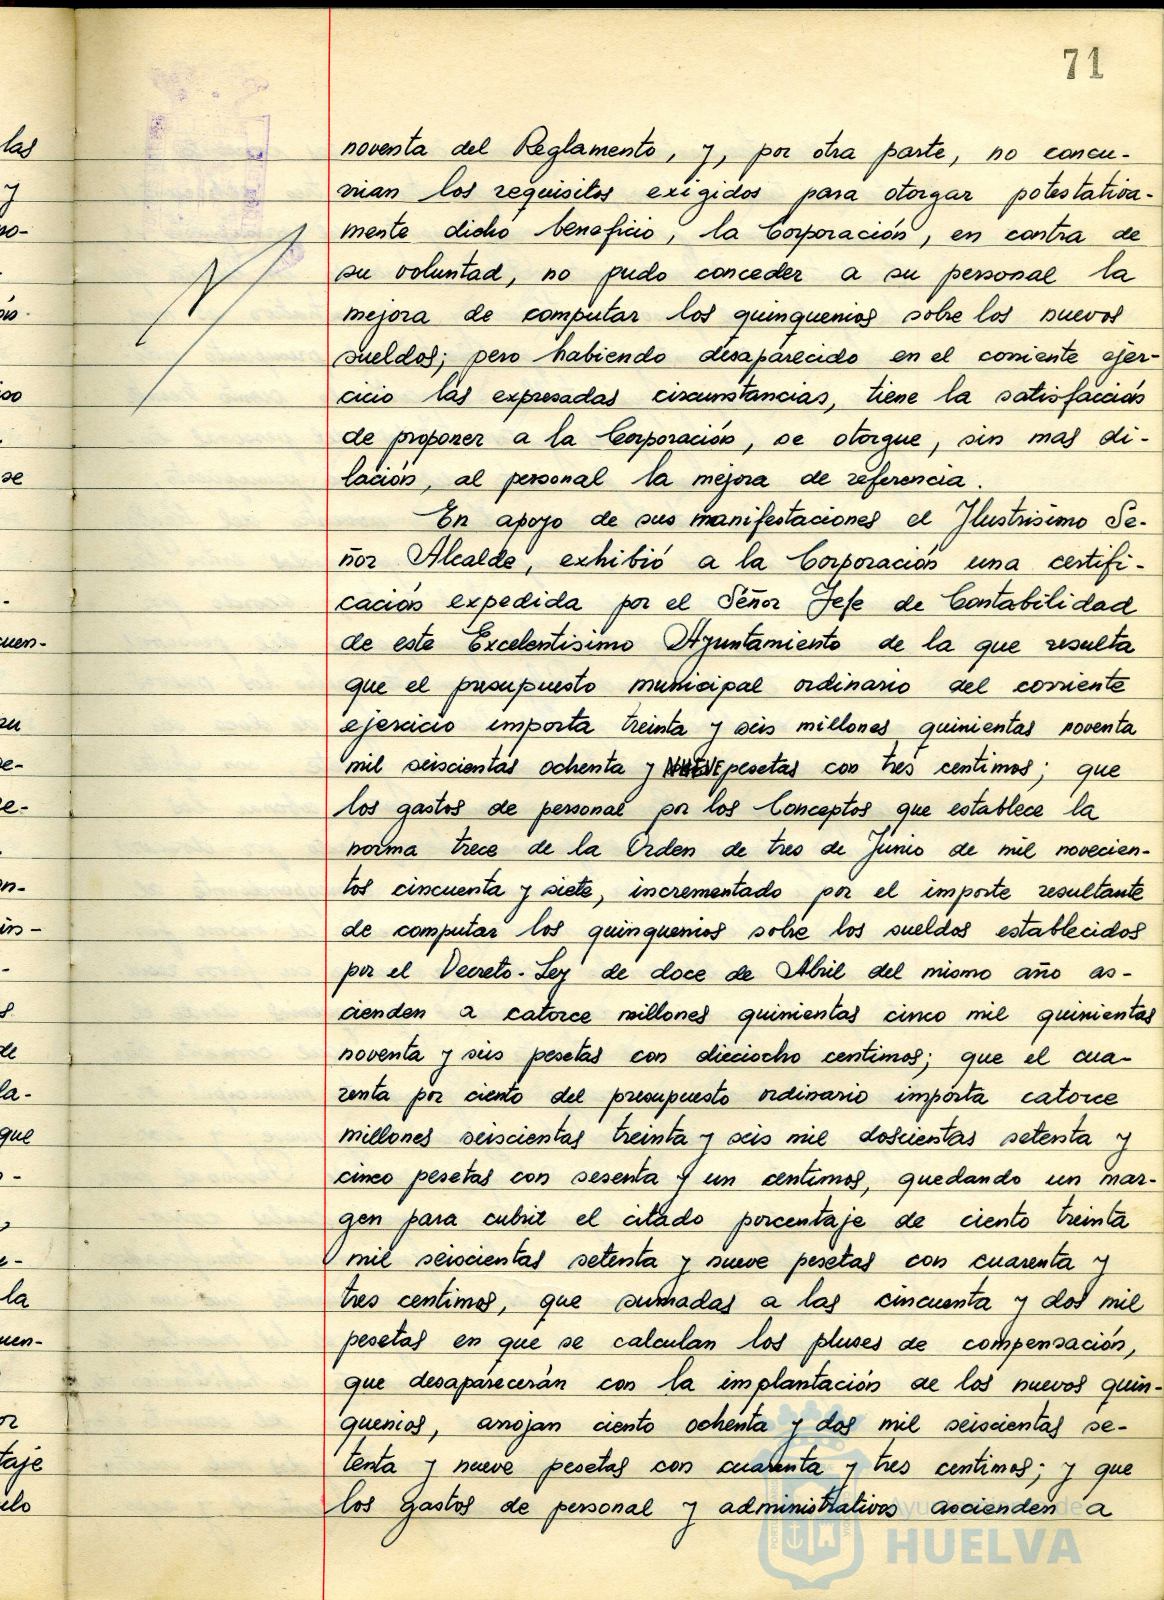 71
noventa del Reglamento, y, por otra parte, no concu-
rrian los requisitos exigidos para otorgar potestativa-
mente dicho beneficio, la Corporación, en contra de
su voluntad, no pudo conceder a su personal la
mejora de computar los quinquenios sobre los nuevos
sueldos; pero habiendo desaparecido en el corriente ejer-
cicio las expresadas circunstancias, tiene la satisfacción
de proponer a la Corporación, se otorgue, sin mas di-
lación, al personal la mejora de referencia.
En apoyo de sus manifestaciones el Ilustrisimo Se-
ñor Alcalde, exhibió a la Corporación una certifi-
cación expedida por el Señor Jefe de Contabilidad
de este Excelentisimo Ayuntamiento de la que resulta
que el presupuesto municipal ordinario del corriente
ejercicio importa treinta y seis millones quinientas noventa
mil seiscientas ochenta y NUEVE pesetas con tres centimos; que
los gastos de personal por los Conceptos que establece la
norma trece de la Orden de tres de Junio de mil novecien-
tos cincuenta y siete, incrementado por el importe resultante
de computar los quinquenios sobre los sueldos establecidos
por el Decreto-Ley de doce de Abril del mismo año as-
cienden a catorce millones quinientas cinco mil quinientas
noventa y seis pesetas con dieciocho centimos; que el cua-
renta por ciento del presupuesto ordinario importa catorce
millones seiscientas treinta y seis mil doscientas setenta y
cinco pesetas con sesenta y un centimos, quedando un mar-
gen para cubrir el citado porcentaje de ciento treinta
mil seiscientas setenta y nueve pesetas con cuarenta y
tres centimos, que sumadas a las cincuenta y dos mil
pesetas en que se calculan los pluses de compensación,
que desaparecerán con la implantación de los nuevos quin-
quenios, arrojan ciento ochenta y dos mil seiscientas se-
tenta y nueve pesetas con cuarenta y tres centimos; y que
los gastos de personal y administrativos ascienden a
Ayuntamiento de
HUELVA
las
y
se
que
la